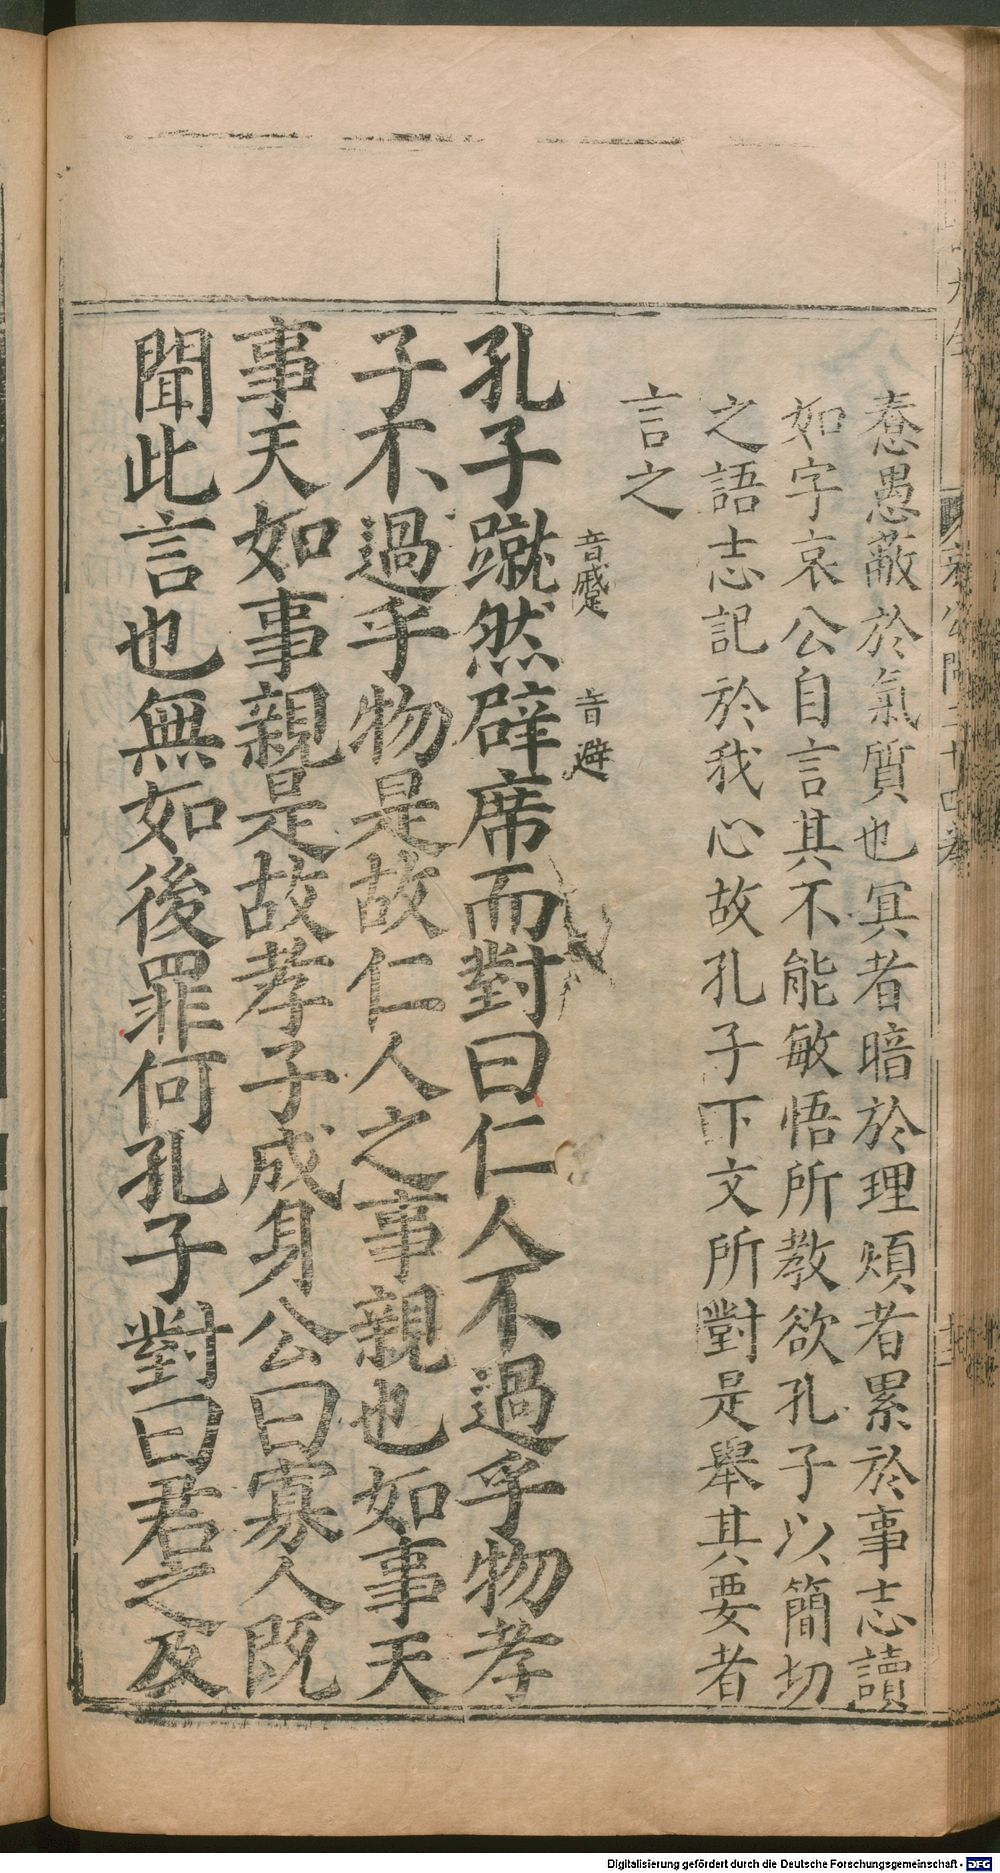 惷愚蔽於氣質也冥者暗於理煩者累於事志讀
如字哀公自言其不能敏悟所教欲孔子以簡切
之語志記於我心故孔子下文所對是舉其要者
言之
音蹙
音避
孔子蹴然辟席而對曰仁人不過乎物孝
子不過乎物是故仁人之事親也如事天
事天如事親是故孝子成身公曰寡人既
聞此言也無如後罪何孔子對曰君之及
Digitalisierung gefördert durch die Deutsche Forschungsgemeinschaft - DFG